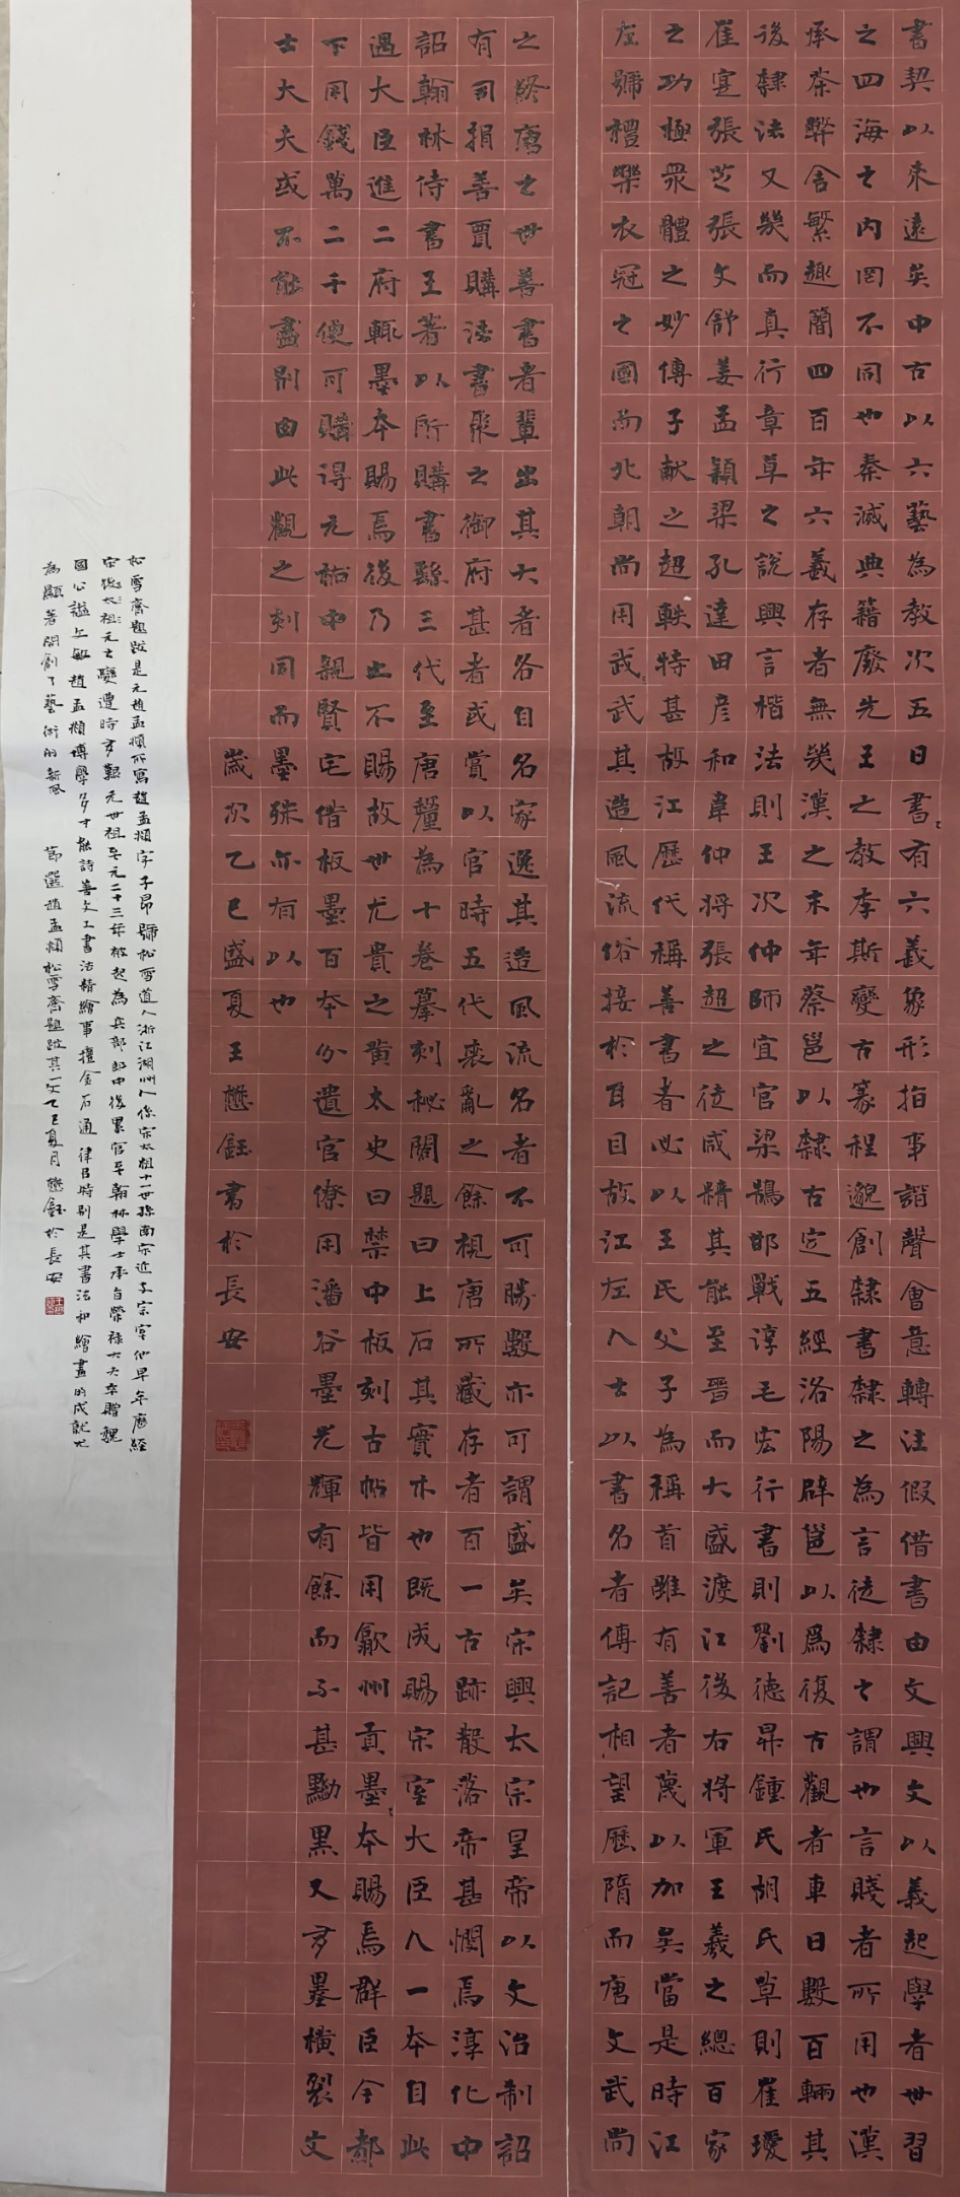 書契以來遠矣中古以六藝為教次五曰書有六義象形指事諧聲會意轉注假借書由文興文以義起學者世習
之四海之內罔不同也秦滅典籍廢先王之教李斯變古篆程邈創隸書隸之為言徒隸之謂也言賤者所用也漢
承秦弊舍繁趣簡四百年六義存者無幾漢之末年蔡邕以隸古定五經洛陽辟邕以為復古觀者車日數百輛其
後隸法又幾而真行章草之說興言楷法則王次仲師宜官梁鵠邯戰淳毛宏行書則劉德昇鍾氏胡氏草則崔瑗
崔寔張芝張文舒姜孟穎梁孔達田彦和韋仲將張超之徒咸精其能至晉而大盛渡江後右將軍王羲之總百家
之功極眾體之妙傳子献之超軼特甚故江歷代稱善書者必以王氏父子為稱首雖有善者蔑以加矣當是時江
左號禮樂衣冠之國而北朝尚用武武其造風流俗接於耳目故江左人士以書名者傳記相望歷隋而唐文武尚
之終唐之世善書者輩出其大者各自名家逸其遺風流名者不可勝數亦可謂盛矣宋興太宗皇帝以文治制詔
有司捐善賈購法書聚之御府甚者或賞以官時五代衰亂之餘視唐所藏存者百一古跡散落帝甚憫焉淳化中
詔翰林侍書王著以所購書縣三代至唐釐為十卷摹刻秘閣題曰上石其實木也既成賜宗室大臣人一本自此
遇大臣進二府輒墨本賜焉後乃止不賜故世尤貴之黄太史曰禁中板刻古帖皆用歙州貢墨本賜焉群臣今都
下用錢萬二千便可購得元祐中親賢宅借板墨百本分遺官僚用潘谷墨光輝有餘而不甚黝黑又多墨橫裂文
士大夫或不能盡別由此觀之刻同而墨殊亦有以也
歲次乙巳盛夏王懋鈺書於長安
松雪齋題跋是元趙孟頫所寫趙孟頫字子昂號松雪道人浙江湖州人係宋太祖十一世孫南宋近支宗室他早年應經
宋德太祖元之變遭時多艱元世祖至元二十三年被起為兵部郎中後累官至翰林學士承旨榮祿大夫卒贈魏
國公謚文敏趙孟頫博學多才能詩善文工書法精繪事擅金石通律呂特別是其書法和繪畫的成就尤
為顯著開創了藝術的新風 節選趙孟頫松雪齋題跋其一文乙巳夏月懋鈺於長安